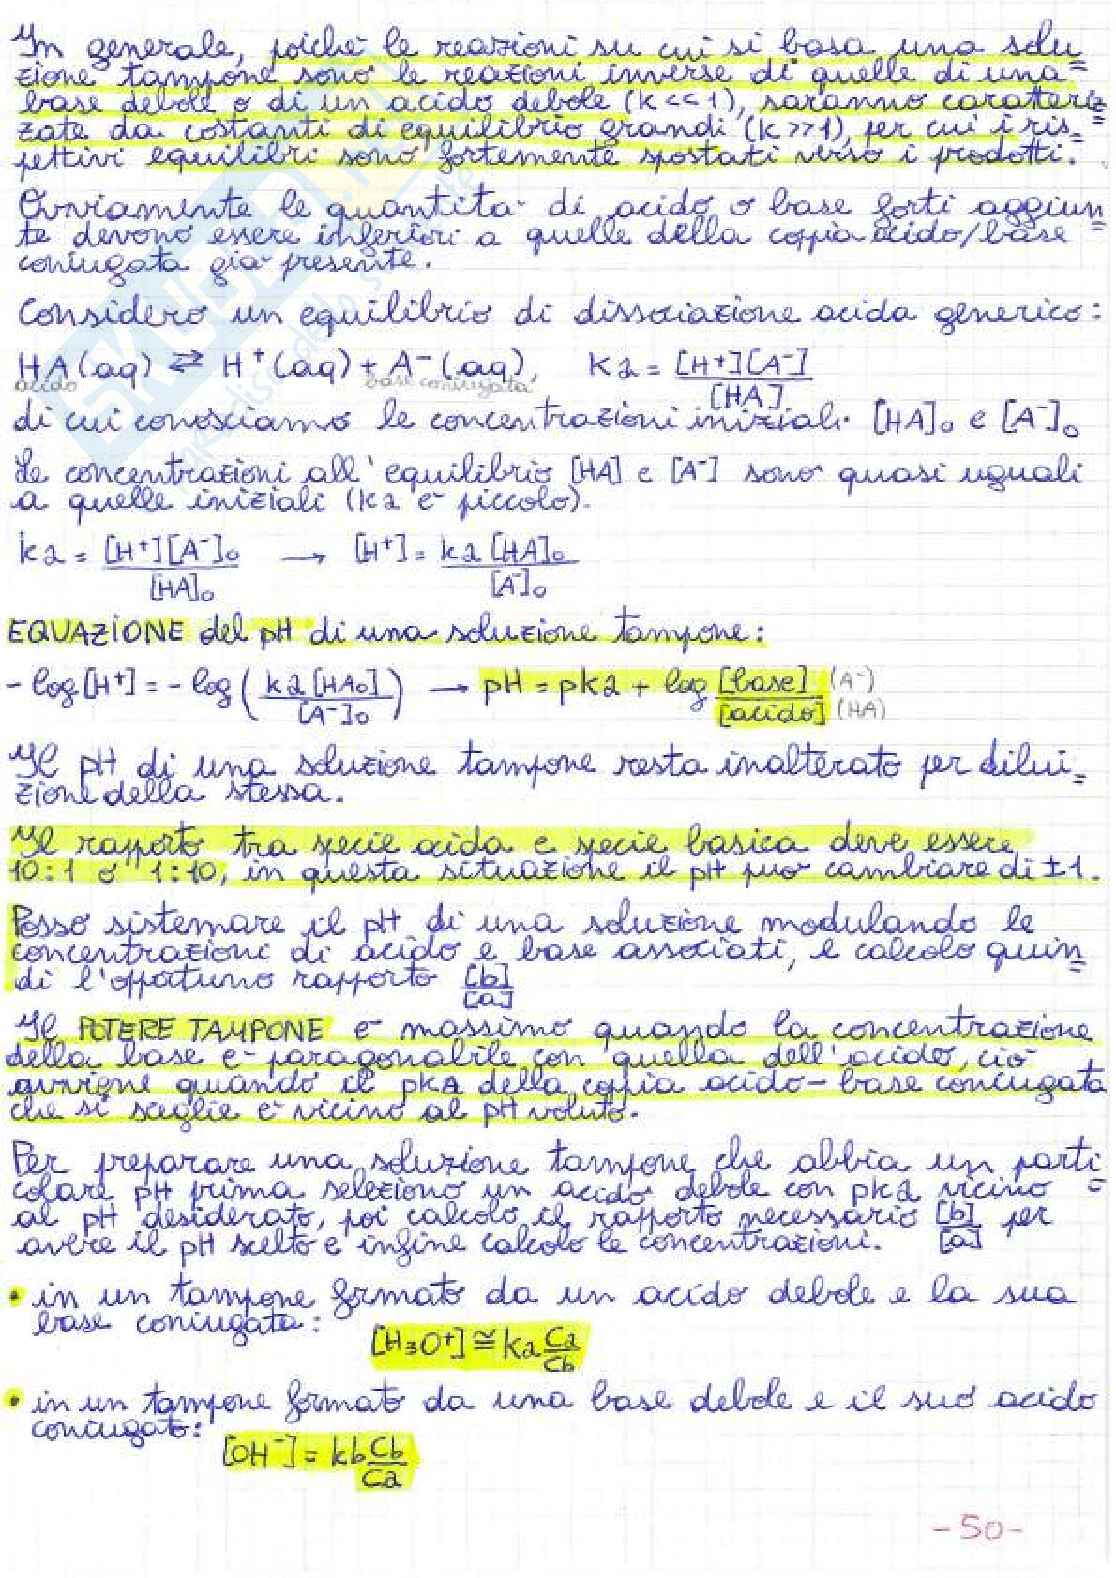 In generale, poichè le reazioni su cui si basa una solu=
zione tampone sono le reazioni inverse di quelle di una
base debole o di un acido debole (k<<1), saranno caratteriz=
zate da costanti di equilibrio grandi (k>>1), per cui i ris=
pettivi equilibri sono fortemente spostati verso i prodotti.
Ovviamente le quantità di acido o base forti aggiun=
te devono essere inferiori a quelle della coppia acido/base
coniugata già presente.
Considero un equilibrio di dissociazione acida generico:
HA (aq) ⇄ H⁺ (aq) + A⁻ (aq), ka = [H⁺][A⁻]/[HA]
acido base coniugata
di cui conosciamo le concentrazioni iniziali. [HA]₀ e [A⁻]₀
Le concentrazioni all'equilibrio [HA] e [A⁻] sono quasi uguali
a quelle iniziali (ka è piccolo).
ka = [H⁺][A⁻]₀/[HA]₀ → [H⁺] = ka [HA]₀/[A⁻]₀
EQUAZIONE del pH di una soluzione tampone:
- log [H⁺] = - log (ka [HA₀]/[A⁻]₀) → pH = pka + log [base]/[acido] (A⁻) (HA)
Il pH di una soluzione tampone resta inalterato per dilui=
zione della stessa.
Il rapporto tra specie acida e specie basica deve essere
10:1 o 1:10, in questa situazione il pH può cambiare di ±1.
Posso sistemare il pH di una soluzione modulando le
concentrazioni di acido e base associati, e calcolo quin=
di l'opportuno rapporto [b]/[a]
Il POTERE TAMPONE è massimo quando la concentrazione
della base è paragonabile con quella dell'acido, ciò
avviene quando il pka della coppia acido-base coniugata
che si sceglie è vicino al pH voluto.
Per preparare una soluzione tampone che abbia un parti=
colare pH prima seleziono un acido debole con pka vicino
al pH desiderato, poi calcolo il rapporto necessario [b]/[a] per
avere il pH scelto e infine calcolo le concentrazioni.
• in un tampone formato da un acido debole e la sua
base coniugata:
[H₃O⁺] ≅ ka Ca/Cb
• in un tampone formato da una base debole e il suo acido
coniugato:
[OH⁻] = kb Cb/Ca
-50-